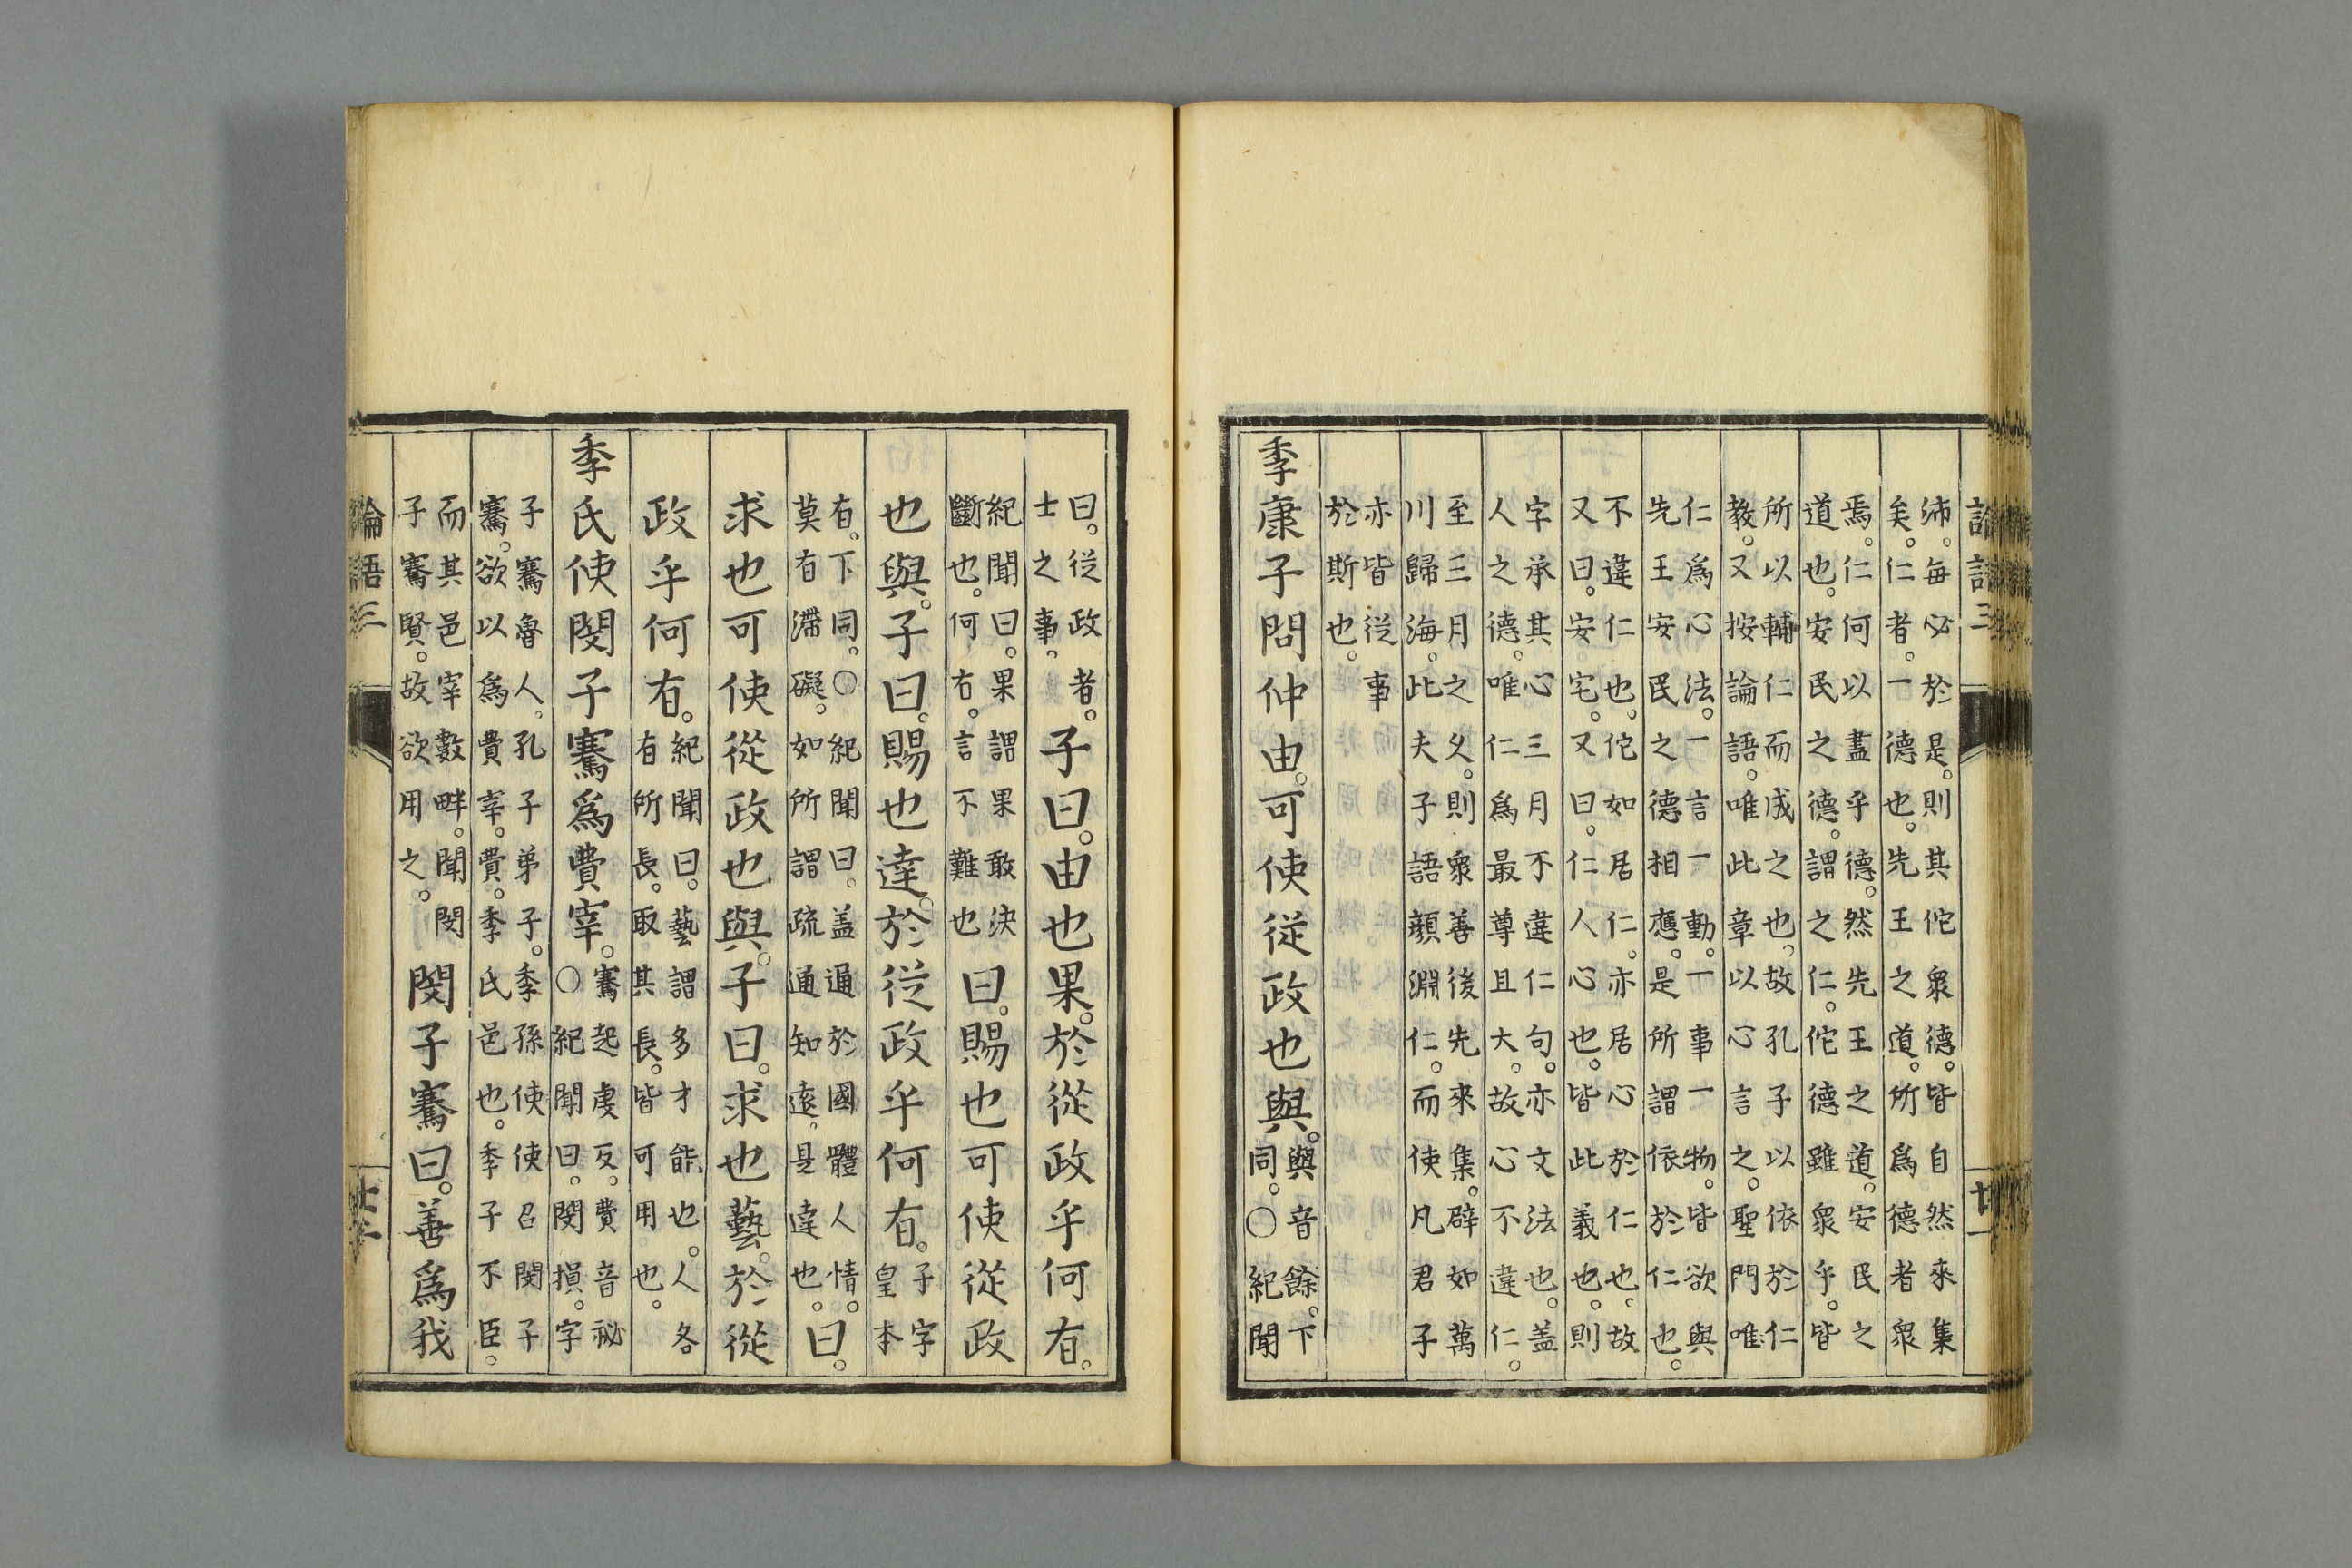 沛。每必於是。則其佗衆德。皆自然來集
矣。仁者。一德也。先王之道。所爲德者衆
焉。仁何以盡乎德。然先王之道。安民之
道也。安民之德。謂之仁。佗德雖衆乎。皆
所以輔仁而成之也。故孔子以依於仁
教。又按論語。唯此章以心言之。聖門唯
仁爲心法。一言一動。一事一物。皆欲與
先王安民之德相應。是所謂依於仁也。
不違仁也。佗如居仁。亦居心於仁也。故
又曰。安宅。又曰。仁人心也。皆此義也。則
字承其心三月不違仁句。亦文法也。蓋
人之德。唯仁爲最尊且大。故心不違仁。
至三月之久。則衆善後先來集。辟如萬
川歸海。此夫子語顏淵仁。而使凡君子
亦皆從事
於斯也。
季康子問仲由。可使從政也與。與音餘。下
同。○紀聞
曰。從政者。
士之事。
子曰。由也果。於從政乎何有。
紀聞曰。果謂果敢決
斷也。何有。言不難也
曰。賜也可使從政
也與。子曰。賜也達。於從政乎何有。子字
皇本
有。下同。○紀聞曰。蓋通於國體人情。
莫有滯礙。如所謂疏通知遠。是達也。
曰。
求也可使從政也與。子曰。求也藝。於從
政乎何有。紀聞曰。藝謂多才能也。人各
有所長。取其長。皆可用也。
季氏使閔子騫爲費宰。騫起虔反。費音祕
○紀聞曰。閔損。字
子騫魯人。孔子弟子。季孫使使召閔子
騫。欲以爲費宰。費。季氏邑也。季子不臣。
而其邑宰數畔。聞閔
子騫賢。故欲用之。
閔子騫曰。善爲我
論語三